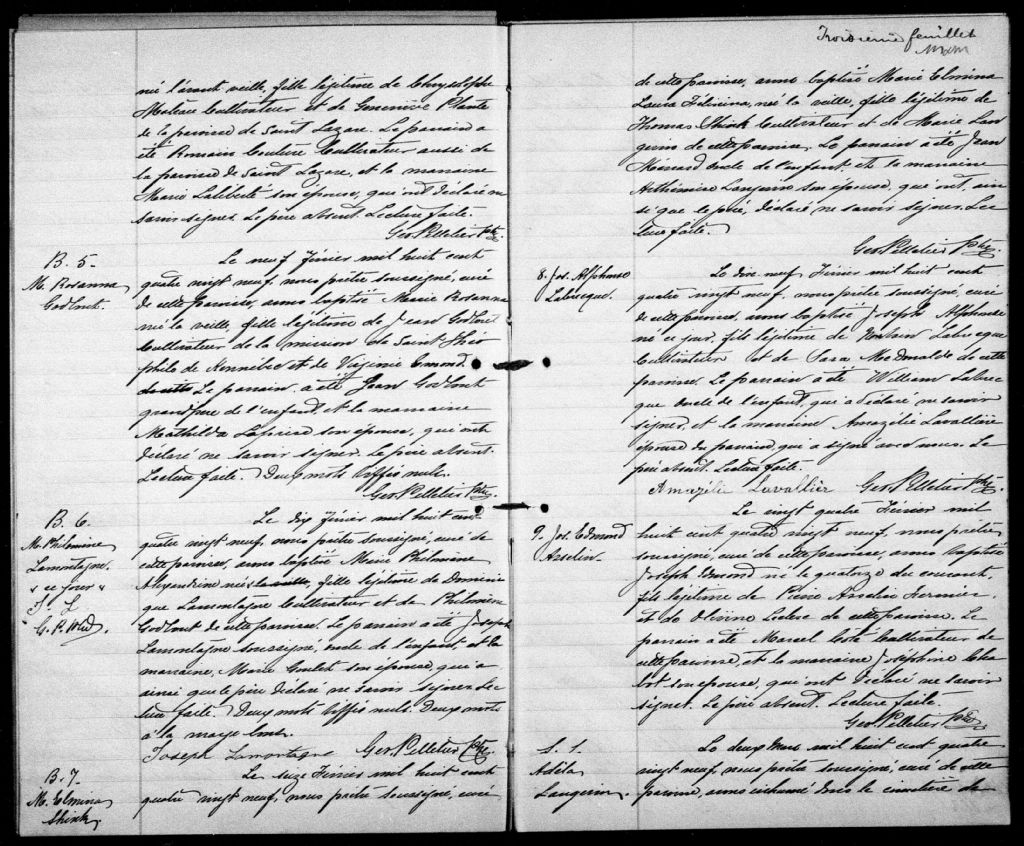 né l'avant veille, fille légitime de Chrysolophe
Moteau Cultivateur et de Geneviève Plante
de la paroisse de Saint Lazare. Le parrain a
été Romain Couture Cultivateur aussi de
la paroisse de Saint Lazare, et la marraine
Marie Laliberté son épouse, qui ont déclaré ne
savoir signer. Le père absent. Lecture faite.
Geo Pelletier Ptre.
B. 5-
M. Rosanna
Godbout.
Le neuf Février mil huit cent
quatre vingt neuf, nous prêtre soussigné, curé
de cette paroisse, avons baptisé Marie Rosanna
née la veille, fille légitime de Jean Godbout
Cultivateur de la mission de Saint Théo
phile de Kennébec et de Virginie Emond.
de cette Le parrain a été Jean Godbout
grand père de l'enfant, et la marraine
Mathilda son épouse, qui ont
déclaré ne savoir signer. Le père absent.
Lecture faite. Deux mots biffés nuls.
Geo Pelletier Ptre.
B. 6.
M. Philomine
Lamontagne.
"ce jour"
J. L
G. P. Ptre.
Le dix Février mil huit cent
quatre vingt neuf, nous prêtre soussigné, curé de
cette paroisse, avons baptisé Marie Philomine
Alexandrine née la veille, fille légitime de Domini
que Lamontagne Cultivateur et de Philomène
Godbout de cette paroisse. Le parrain a été Joseph
Lamontagne soussigné, oncle de l'enfant, et la
marraine, Marie Goulet son épouse, qui a
ainsi que le père déclaré ne savoir signer. Lec
ture faite. Deux mots biffés nuls. Deux mots
à la marge bons.
Joseph Lamontagne Geo Pelletier Ptre
B. 7-
M. Elmina
Shink
Le seize Février mil huit cent
quatre vingt neuf, nous prêtre soussigné, curé
Troisième feuillet
de cette paroisse, avons baptisé Marie Elmina
Laura Félixina, né la veille, fille légitime de
Thomas Shink Cultivateur et de Marie Lan
gevin de cette paroisse. Le parrain a été Jean
Ménard oncle de l'enfant et la marraine
Arthémise Langevin son épouse, qui ont, ain
si que le père, déclaré ne savoir signer. Lec
ture faite.
Geo Pelletier Ptre.
8. Jos. Alphonse
Labrecque.
Le dix neuf Février mil huit cent
quatre vingt neuf, nous prêtre soussigné, curé
de cette paroisse, avons baptisé Joseph Alphonse
né ce jour, fils légitime de Labrecque
Cultivateur et de Sara McDonald de cette
paroisse. Le parrain a été William Labrec
que oncle de l'enfant, qui a déclaré ne savoir
signer, et la marraine Amazélie Lavallière
épouse du parrain, qui a signé avec nous. Le
père absent. Lecture faite.
Amazéli Lavallièr Geo Pelletier Ptre
9. Jos. Edmond
Asselin.
Le vingt quatre Février mil
huit cent quatre vingt neuf, nous prêtre
soussigné, curé de cette paroisse, avons baptisé
Joseph Edmond né le quatorze du courant,
fils légitime de Pierre Asselin Fermier
et de Olivine Leclerc de cette paroisse. Le
parrain a été Marcel Coté Cultivateur de
cette paroisse, et la marraine Joséphine Cha
bot son épouse, qui ont déclaré ne savoir
signer. Le père absent. Lecture faite.
Geo Pelletier Ptre
S. 1.
Adéla
Langevin.
Le deux Mars mil huit cent quatre
vingt neuf, nous prêtre soussigné, curé de cette
paroisse, avons inhumé dans le cimetière de